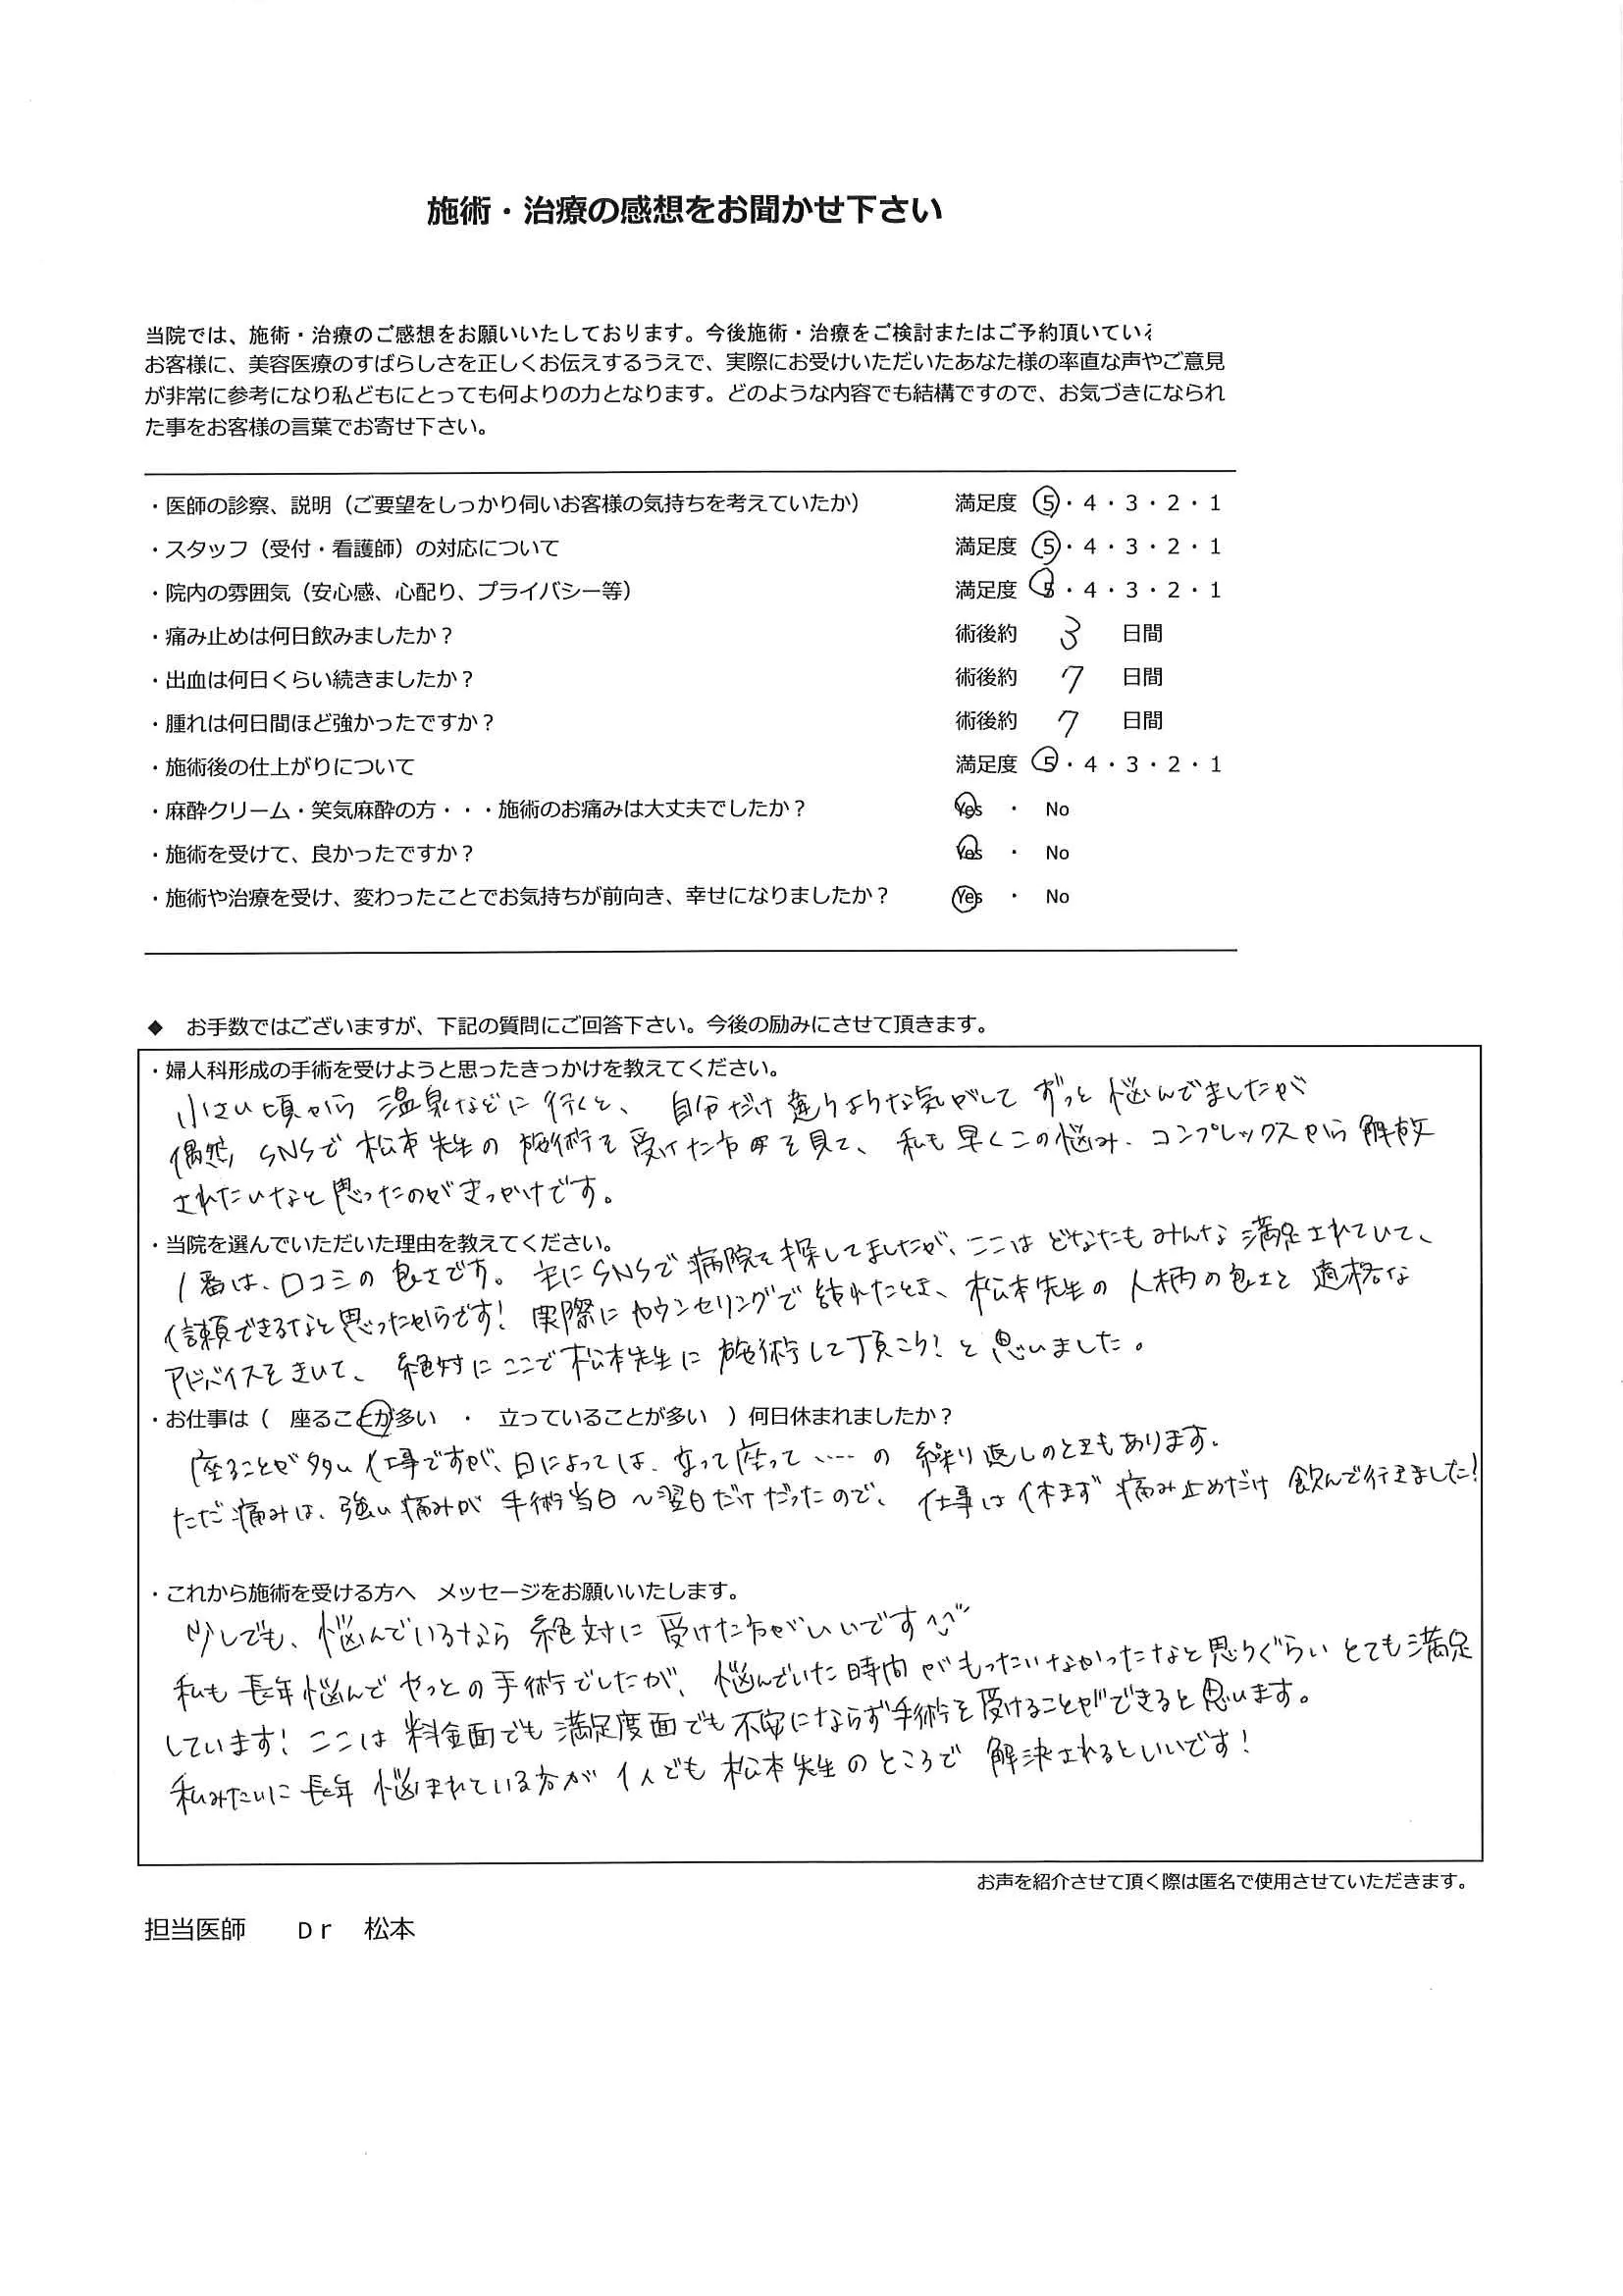 施術・治療の感想をお聞かせ下さい
当院では、施術・治療のご感想をお願いいたしております。今後施術・治療をご検討またはご予約頂いている
お客様に、美容医療のすばらしさを正しくお伝えするうえで、実際にお受けいただいたあなた様の率直な声やご意見
が非常に参考になり私どもにとっても何よりの力となります。どのような内容でも結構ですので、お気づきになられ
た事をお客様の言葉でお寄せ下さい。
・医師の診察、説明（ご要望をしっかり伺いお客様の気持ちを考えていたか） 満足度 5・4・3・2・1
・スタッフ（受付・看護師）の対応について 満足度 5・4・3・2・1
・院内の雰囲気（安心感、心配り、プライバシー等） 満足度 5・4・3・2・1
・痛み止めは何日飲みましたか？ 術後約 3 日間
・出血は何日くらい続きましたか？ 術後約 7 日間
・腫れは何日間ほど強かったですか？ 術後約 7 日間
・施術後の仕上がりについて 満足度 5・4・3・2・1
・麻酔クリーム・笑気麻酔の方・・・施術のお痛みは大丈夫でしたか？ Yes ・ No
・施術を受けて、良かったですか？ Yes ・ No
・施術や治療を受け、変わったことでお気持ちが前向き、幸せになりましたか？ Yes ・ No
◆ お手数ではございますが、下記の質問にご回答下さい。今後の励みにさせて頂きます。
・婦人科形成の手術を受けようと思ったきっかけを教えてください。
小さい頃から 温泉などに行くと、 自分だけ違うような気がして ずっと悩んでましたが
偶然、SNSで 松本先生の 施術を受けた方 を見て、 私も早くこの悩み、コンプレックスから解放
されたいなと思ったのがきっかけです。
・当院を選んでいただいた理由を教えてください。
1番は、口コミの良さです。 主にSNSで病院を探してましたが、ここは どなたもみんな満足されていて、
信頼できるなと思ったからです！ 実際にカウンセリングで 訪れたとき、松本先生の人柄の良さと 適格な
アドバイスをきいて、 絶対にここで松本先生に施術して頂こう！と思いました。
・お仕事は（ 座ることが多い ・ 立っていることが多い ）何日休まれましたか？
座ることが多い仕事ですが、日によっては、立って座って……の 繰り返しのときもあります。
ただ痛みは、強い痛みが 手術当日～翌日だけだったので、 仕事は休まず 痛み止めだけ飲んで行えました！
・これから施術を受ける方へ メッセージをお願いいたします。
少しでも、悩んでいるなら 絶対に受けた方がいいです^^
私も長年悩んでやっとの手術でしたが、悩んでいた時間がもったいなかったなと思うぐらいとても満足
しています！ここは料金面でも満足度面でも不安にならず手術を受けることができると思います。
私みたいに長年悩まれている方が1人でも松本先生のところで 解決されるといいです！
お声を紹介させて頂く際は匿名で使用させていただきます。
担当医師 Dr 松本